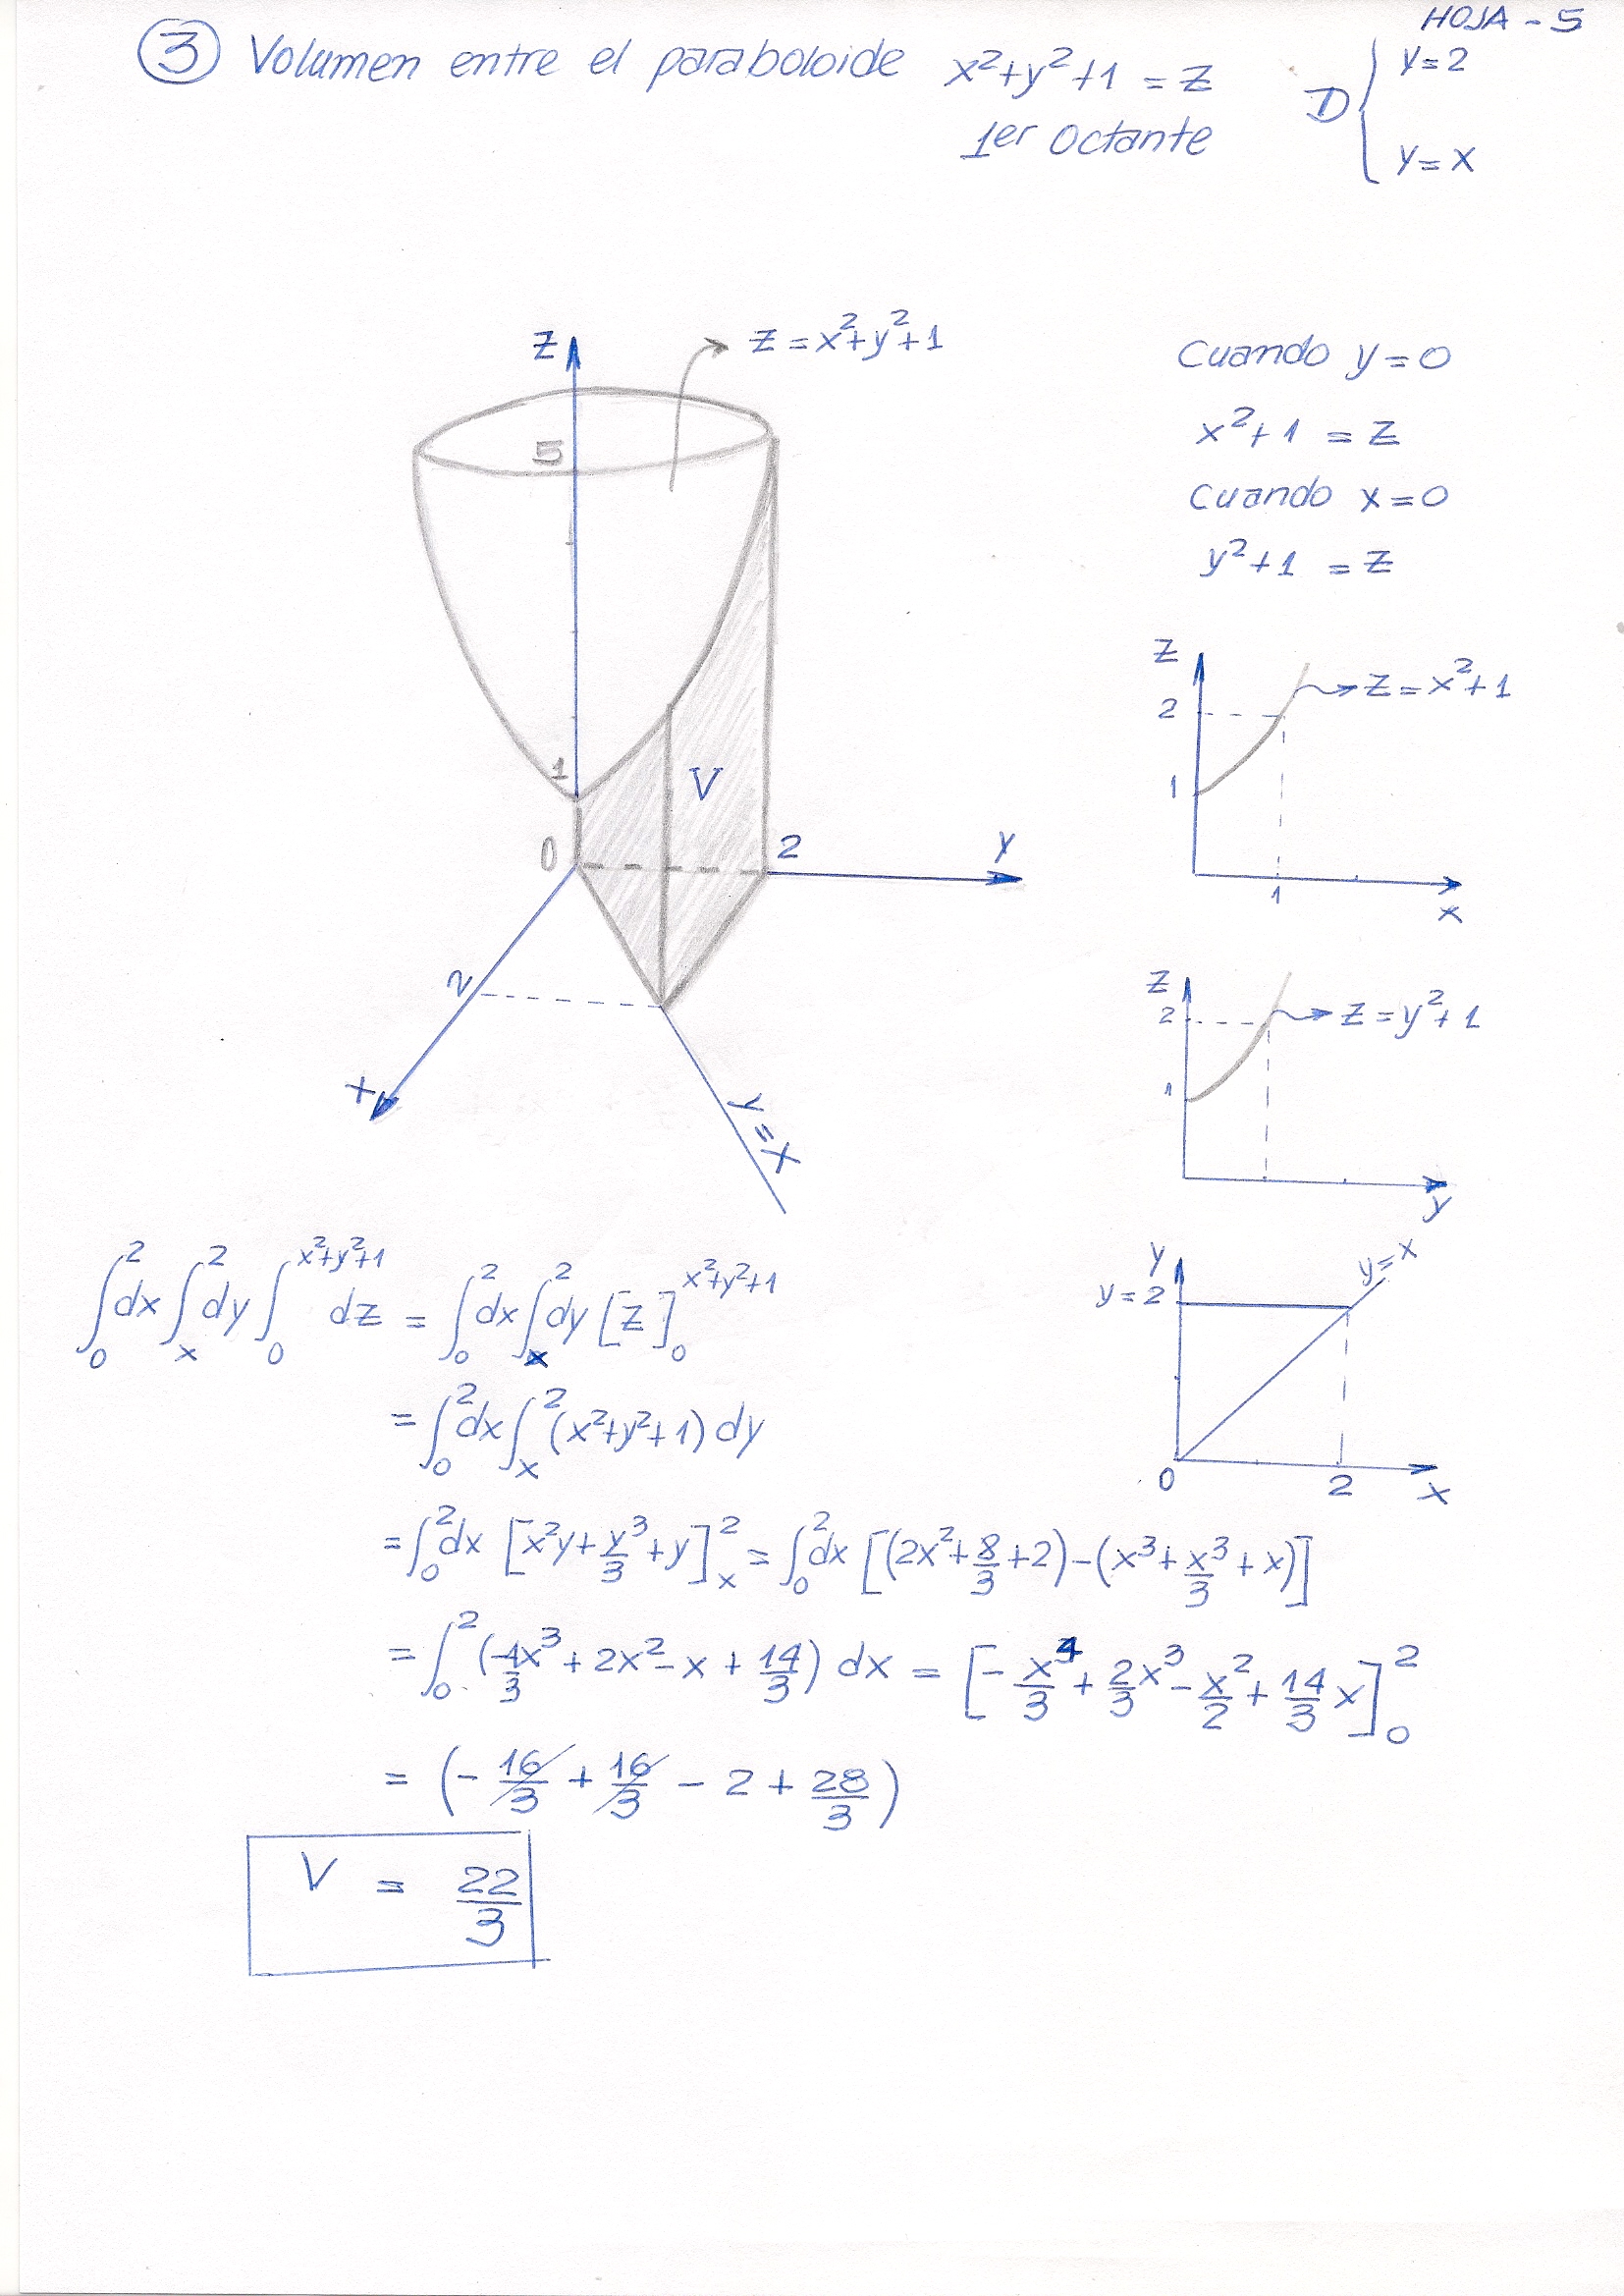 HOJA - 5
③ Volumen entre el paraboloide x²+y²+1 = Z D { y=2
1er octante y=x
Z
Z = x²+y²+1
5
1
0
V
2
y
2
x
y=x
Cuando y=0
x²+1 = Z
Cuando x=0
y²+1 = Z
Z
2
1
Z=x²+1
1
x
Z
2
1
Z=y²+1
y
y
y=2
y=x
0
2
x
∫₀² dx ∫ₓ² dy ∫₀^(x²+y²+1) dz = ∫₀² dx ∫ₓ² dy [Z]₀^(x²+y²+1)
= ∫₀² dx ∫ₓ² (x²+y²+1) dy
= ∫₀² dx [x²y + y³/3 + y]ₓ² = ∫₀² dx [(2x² + 8/3 + 2) − (x³ + x³/3 + x)]
= ∫₀² (−4/3 x³ + 2x² − x + 14/3) dx = [− x⁴/3 + 2/3 x³ − x²/2 + 14/3 x]₀²
= (− 16/3 + 16/3 − 2 + 28/3)
V = 22/3